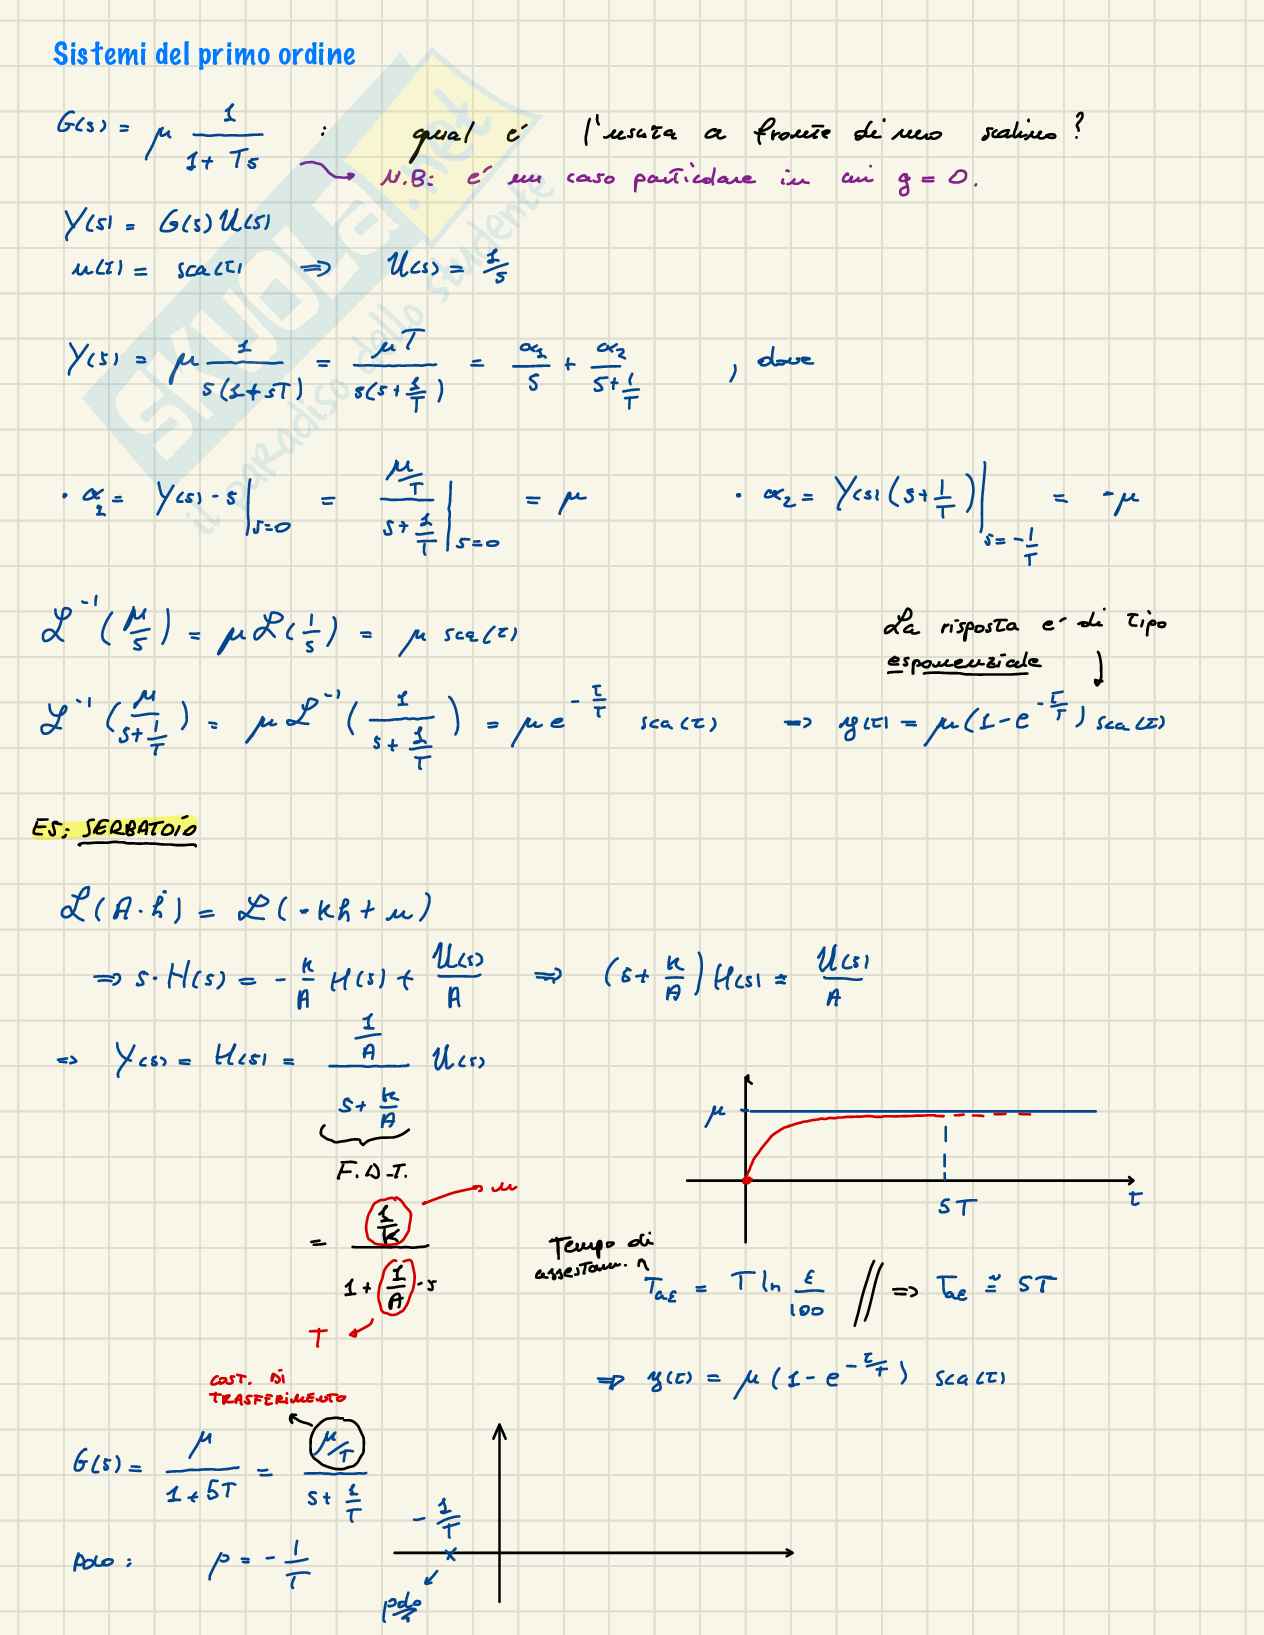 Sistemi del primo ordine
G(s) = μ 1/(1 + Ts) : qual é l'uscita a fronte di uno scalino?
N.B: é un caso particolare in cui g = 0.
Y(s) = G(s) U(s)
u(t) = sca(t) ⇒ U(s) = 1/s
Y(s) = μ 1/(s(1+sT)) = μT/(s(s+1/T)) = α1/s + α2/(s+1/T) , dove
· α1 = Y(s)·s |s=0 = (μ/T)/(s+1/T) |s=0 = μ · α2 = Y(s)(s+1/T) |s=-1/T = -μ
ℒ⁻¹(μ/s) = μℒ(1/s) = μ sca(t)
La risposta é di tipo
esponenziale
ℒ⁻¹(μ/(s+1/T)) = μℒ⁻¹(1/(s+1/T)) = μe^(-t/T) sca(t) ⇒ y(t) = μ(1-e^(-t/T)) sca(t)
ES: SERBATOIO
ℒ(A·ḣ) = ℒ(-kh+u)
⇒ s·H(s) = -k/A H(s) + U(s)/A ⇒ (s+k/A)H(s) = U(s)/A
⇒ Y(s) = H(s) = (1/A)/(s+k/A) U(s)
F.D.T.
μ
5T
t
= (1/k)/(1+(1/A)·s)
μ
T
Tempo di
assestam.
Taε = T ln ε/100 // ⇒ Taε ≅ 5T
⇒ y(t) = μ(1-e^(-t/T)) sca(t)
COST. DI
TRASFERIMENTO
G(s) = μ/(1+sT) = (μ/T)/(s+1/T)
-1/T
Polo: p = -1/T
polo
SKUOLA.net
il paradiso dello studente